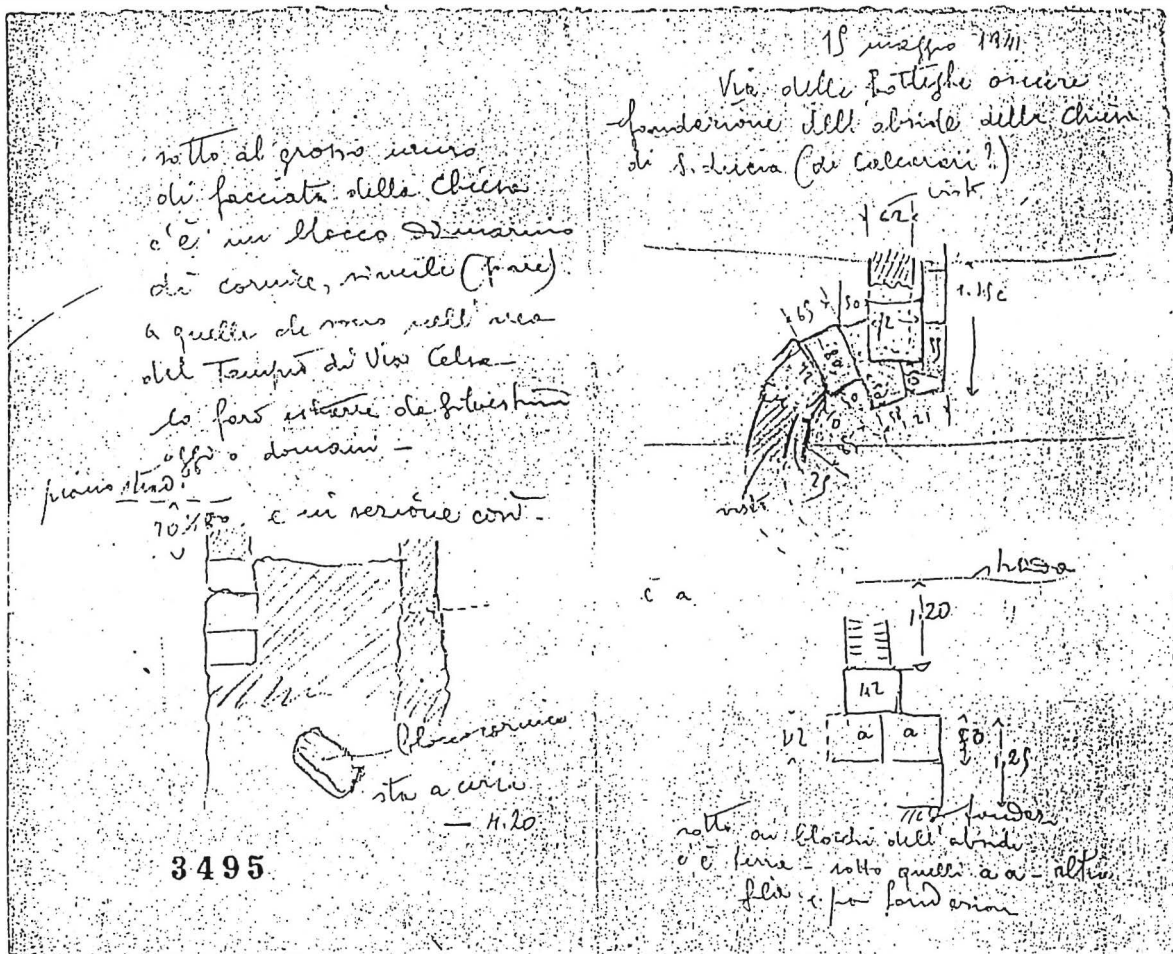 sotto al grosso muro
di facciata della Chiesa
c'è un blocco di marmo
di cornice, simile (pare)
a quelle che sono nell'area
del Tempio di Via Celsa -
lo farò estrarre da Silvestrini
oggi o domani -
piano strad.
e in sezione così -
blocco cornice
sta a circa
- 4.20
3495
15 maggio 1941
Via delle Botteghe oscure
fondazione dell'abside della Chiesa
di S. Lucia (di Calcarari?)
visto
62
65
50
72
80
50
65
1.21
25
visto
strada
c a
1.20
42
a a
1.25
sotto ai blocchi dell'abside
c'è terra - sotto quelli a a - altra
fila e poi fondazioni